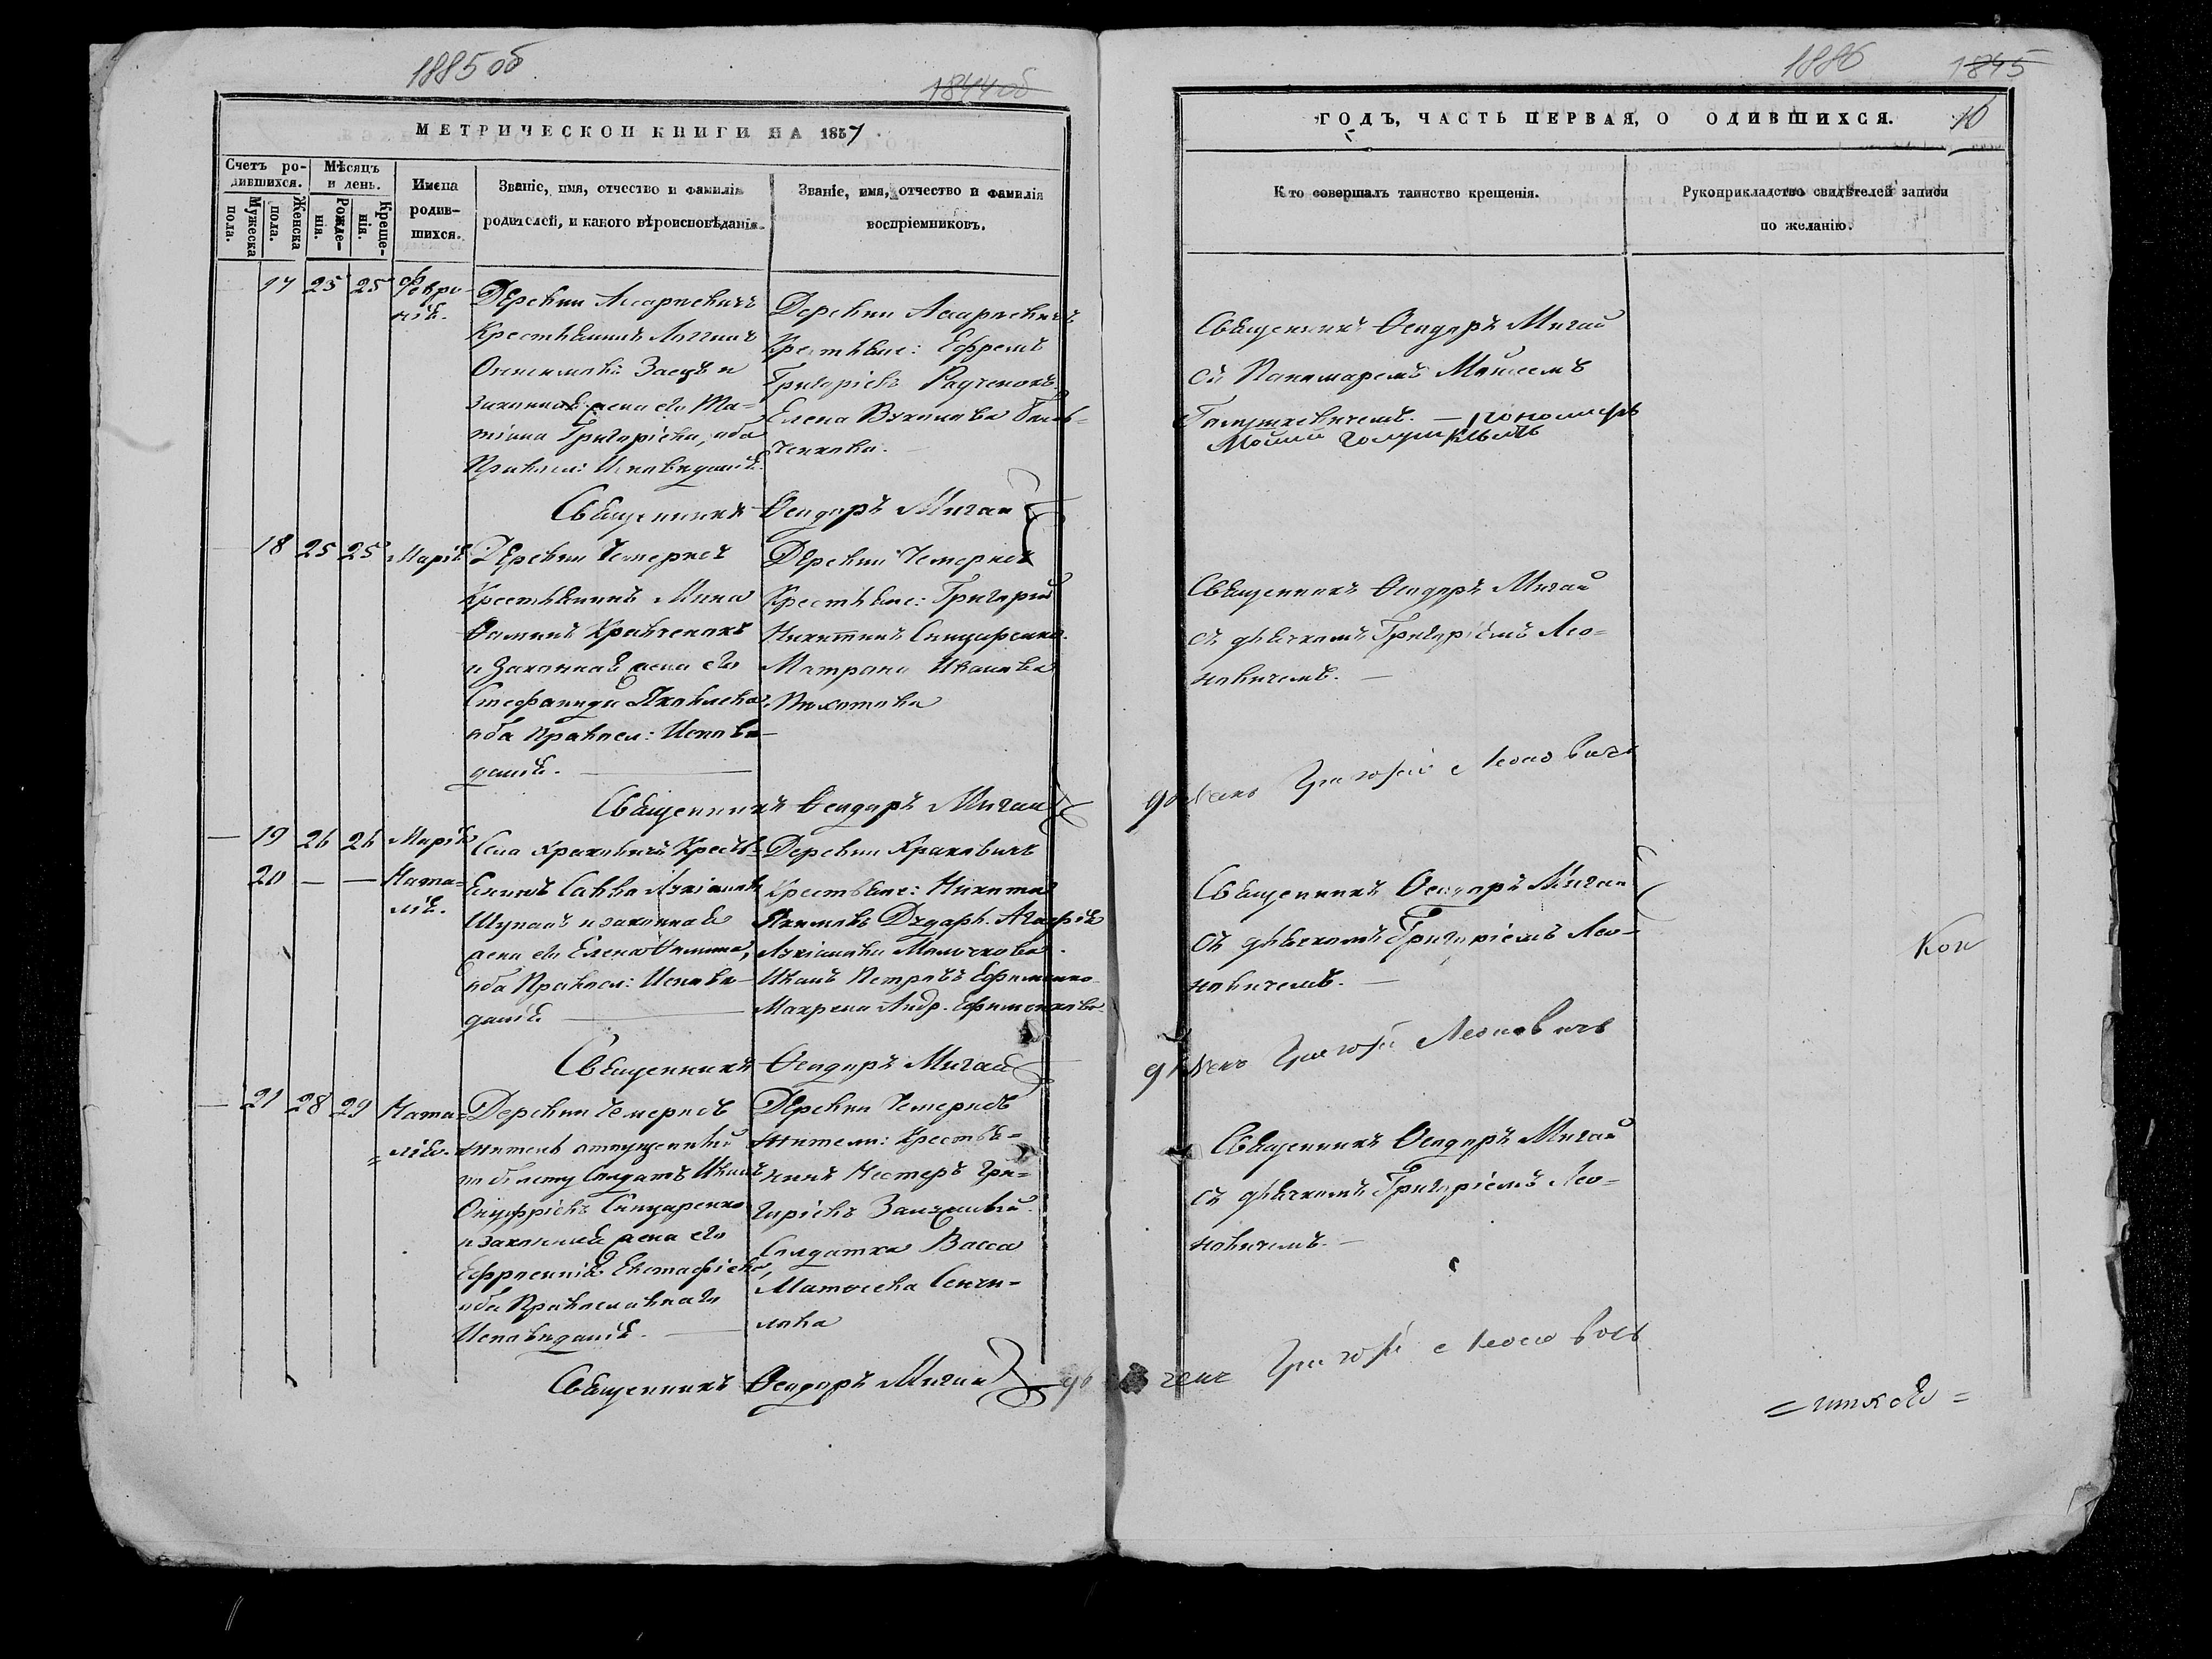 1885 об
1844 об
МЕТРИЧЕСКОЙ КНИГИ НА 1857
Счетъ ро-
дившихся.
Мѣсяцъ
и день.
Мужеска
пола.
Женска
пола.
Рожде-
нія.
Креще-
нія.
Имена
родив-
шихся.
Званіе, имя, отчество и фамилія
родителей, и какого вѣроисповѣданія.
Званіе, имя, отчество и фамилія
воспріемниковъ.
17 25 25 Февро-
нія.
Деревни
Крестьянинъ Логгинъ
Онисимовъ Заецъ и
законная жена его Та-
тіана Григоріева, оба
Правосл: Исповѣданія.
Деревни
Крестьяне: Ефремъ
Григоріевъ Радченокъ.
Елена
ченкова.
Священникъ Ѳеодоръ Мигай
18 25 25 Марія
Деревни Чемерисъ
Крестьянинъ Мина
Ѳоминъ Кравченокъ
и Законная жена его
Стефанида Яковлева
оба Правосл: Исповѣ-
данія.
Деревни Чемерисъ
Крестьяне: Григорій
Никитинъ Сницаренко.
Матрона Иванова
Священникъ Ѳеодоръ Мигай
19 26 26 Марія
20 — — Ната-
лія.
Села Краковичъ Кресть-
янинъ Савва Лукіановъ
Шупакъ и законная
жена его Елена Ѳомина,
оба Правосл: Исповѣ-
данія
Деревни Краковичъ
Крестьяне: Никита
Якимовъ Дударь. Агафія
Лукіанова
Иванъ Петровъ Ефименко
Макрена Андр. Ефименкова
Священникъ Ѳеодоръ Мигай
21 28 29 Ната-
лія.
Деревни Чемерисъ
житель отпущенный
по билету Солдатъ Иванъ
Онуфріевъ Сницаренко
и законная жена его
Ефросинія Евстафіева,
оба Православнаго
Исповѣданія.
Деревни Чемерисъ
жители: Крестья-
нинъ Нестеръ Гри-
горіевъ
Солдатка Васса
Матѳеева
Священникъ Ѳеодоръ Мигай
1886
1845
ГОДЪ, ЧАСТЬ ПЕРВАЯ, О ОДИВШИХСЯ.
10
Кто совершалъ таинство крещенія.
Рукоприкладство свидѣтелей записи
по желанію.
Священникъ Ѳеодоръ Мигай
съ Пономаремъ Моисеемъ
Голушкевичемъ. — пономарь
Моисей Голушкевичъ
Священникъ Ѳеодоръ Мигай
съ дьячкомъ Григоріемъ Лео-
новичемъ. —
дьячекъ Григорій Леоновичъ
Священникъ Ѳеодоръ Мигай
съ дьячкомъ Григоріемъ Лео-
новичемъ. —
дьячекъ Григорій Леоновичъ
Кои
Священникъ Ѳеодоръ Мигай
съ дьячкомъ Григоріемъ Лео-
новичемъ. —
дьячекъ Григорій Леоновичъ